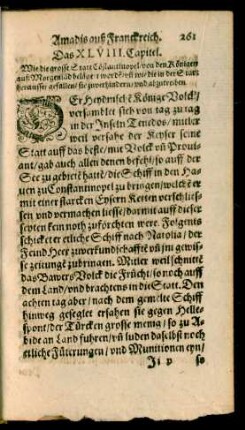 Amadis auß Franckreich. 261
Das XLVIII. Capitel.
Wie die grosse Statt Cōstantinopel von den Königen
auß Morgenlād belägert worden / vñ wie die in der Statt
herausser gefallen / sie zuverhindern / vnd abzutreiben.
DEr Heydnisch Könige Volck /
versamlet sich von tag zu tag
in der Inseln Tenedos / mitler
weil versahe der Keyser seine
Statt auff das beste / mit Volck vñ Provi-
ant / gab auch allen denen befehl / so auff der
See zu gebietē hatte / die Schiff in den Ha-
uen zu Constantinopel zu bringen / welche er
mit einer starcken Eysern Keiten verschlies-
sen vnd vermachen liesse / darmit auff dieser
seyten kein noth zuförchten were. Folgents
schicket er etliche Schiff nach Natolia / der
Feind Heer zuverkundschaffē vñ jm gewis-
se zeitung zubringen. Mitler weil schnitte
das Bawers Volck die Frücht / so noch auff
dem Land / vnd brachtens in die Statt. Den
achten tag aber / nach dem gemelte Schiff
hinweg gesegelt ersahen sie gegen Helle-
spont / der Türcken grosse menig / so zu A-
bide an Land fuhren / vñ luden daselbst noch
etliche Fütterungen / vnd Munitionen eyn /
so